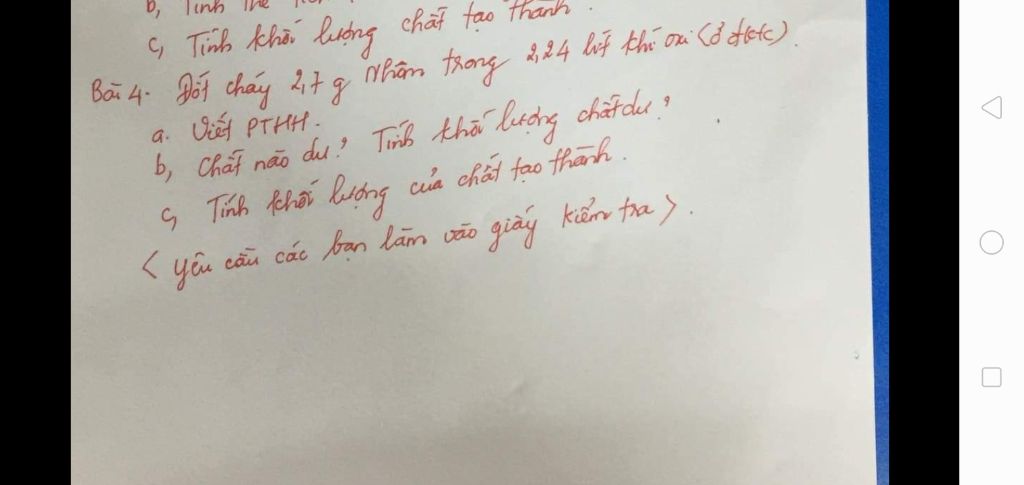 b, Tính thể
c, Tính khối lượng chất tạo thành.
Bài 4. Đốt cháy 2,7 g Nhôm trong 2,24 lít khí oxi (ở đktc).
a. Viết PTHH.
b, Chất nào dư? Tính khối lượng chất dư?
c, Tính khối lượng của chất tạo thành.
< yêu cầu các bạn làm vào giấy kiểm tra >.